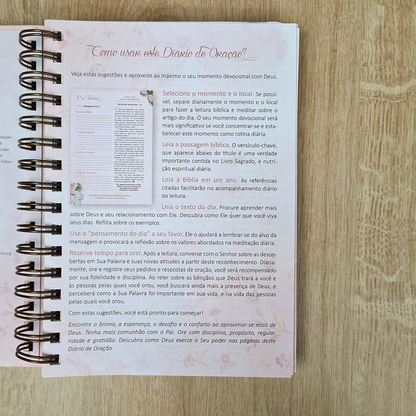 Como usar este Diário de Oração?
Veja estas sugestões e aproveite ao máximo o seu momento devocional com Deus.
Selecione o momento e o local. Se possí-
vel, separe diariamente o momento e o local
para fazer a leitura bíblica e meditar sobre o
artigo do dia. O seu momento devocional será
mais significativo se você concentrar-se e esta-
belecer este momento como rotina diária.
Leia a passagem bíblica. O versículo-chave,
que aparece abaixo do título é uma verdade
importante contida no Livro Sagrado, e nutri-
ção espiritual diária.
Leia a Bíblia em um ano. As referências
citadas facilitarão no acompanhamento diário
da leitura.
Leia o texto do dia. Procure aprender mais
sobre Deus e seu relacionamento com Ele. Descubra como Ele quer que você viva
seus dias. Reflita sobre os exemplos.
Use o "pensamento do dia" a seu favor. Ele o ajudará a lembrar-se do alvo da
mensagem e provocará a reflexão sobre os valores abordados na meditação diária.
Reserve tempo para orar. Após a leitura, converse com o Senhor sobre as desco-
bertas em Sua Palavra e suas novas atitudes a partir deste reconhecimento. Diaria-
mente, ore e registre seus pedidos e respostas de oração, você será recompensado
por sua fidelidade e disciplina. Ao reler sobre as bênçãos que Deus trará a você e
às pessoas pelas quais você orou, você buscará ainda mais a presença de Deus, e
perceberá como a Sua Palavra foi importante em sua vida, e na vida das pessoas
pelas quais você orou.
Com estas sugestões, você está pronto para começar!
Encontre o ânimo, a esperança, o desafio e o conforto ao aproximar-se mais de
Deus. Tenha mais comunhão com o Pai. Ore com disciplina, propósito, regula-
ridade e gratidão. Descubra como Deus exerce o Seu poder nas páginas deste
Diário de Oração.